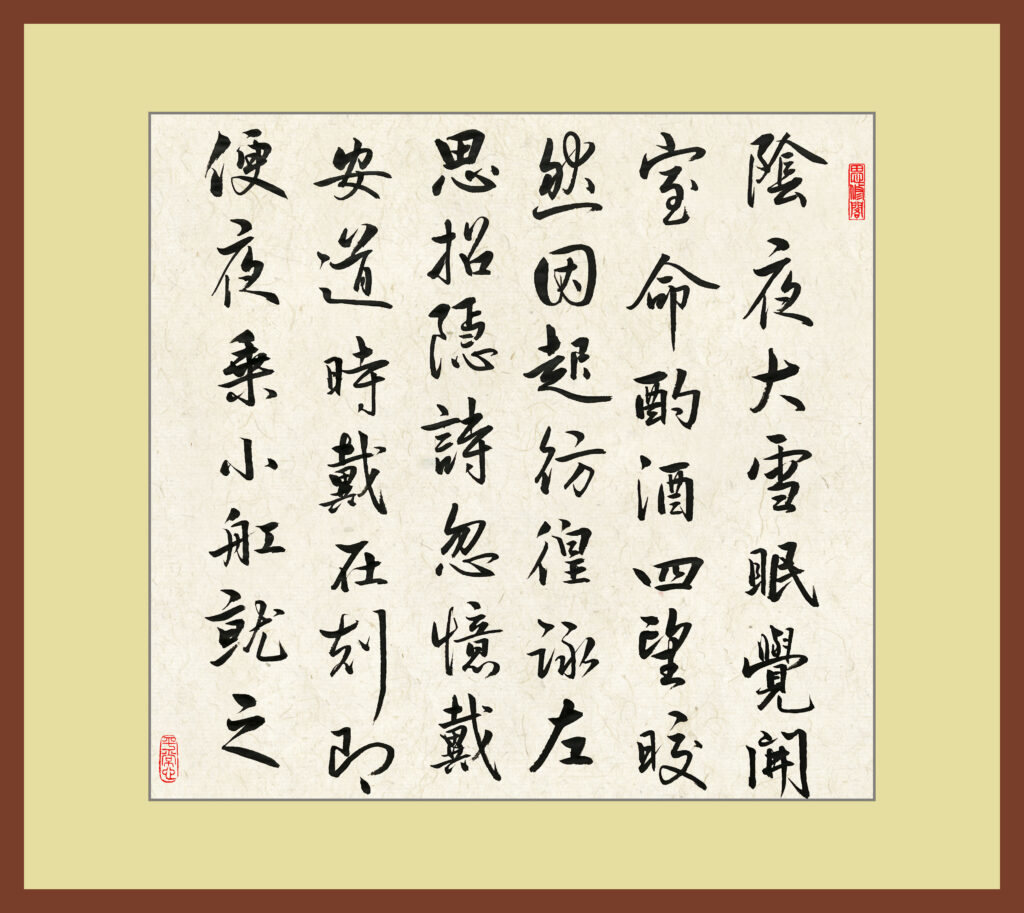 思修閣
陰夜大雪眠覺開
室命酌酒四望晈
然因起彷徨詠左
思招隱詩忽憶戴
安道時戴在剡即
便夜乘小舡就之
平常心